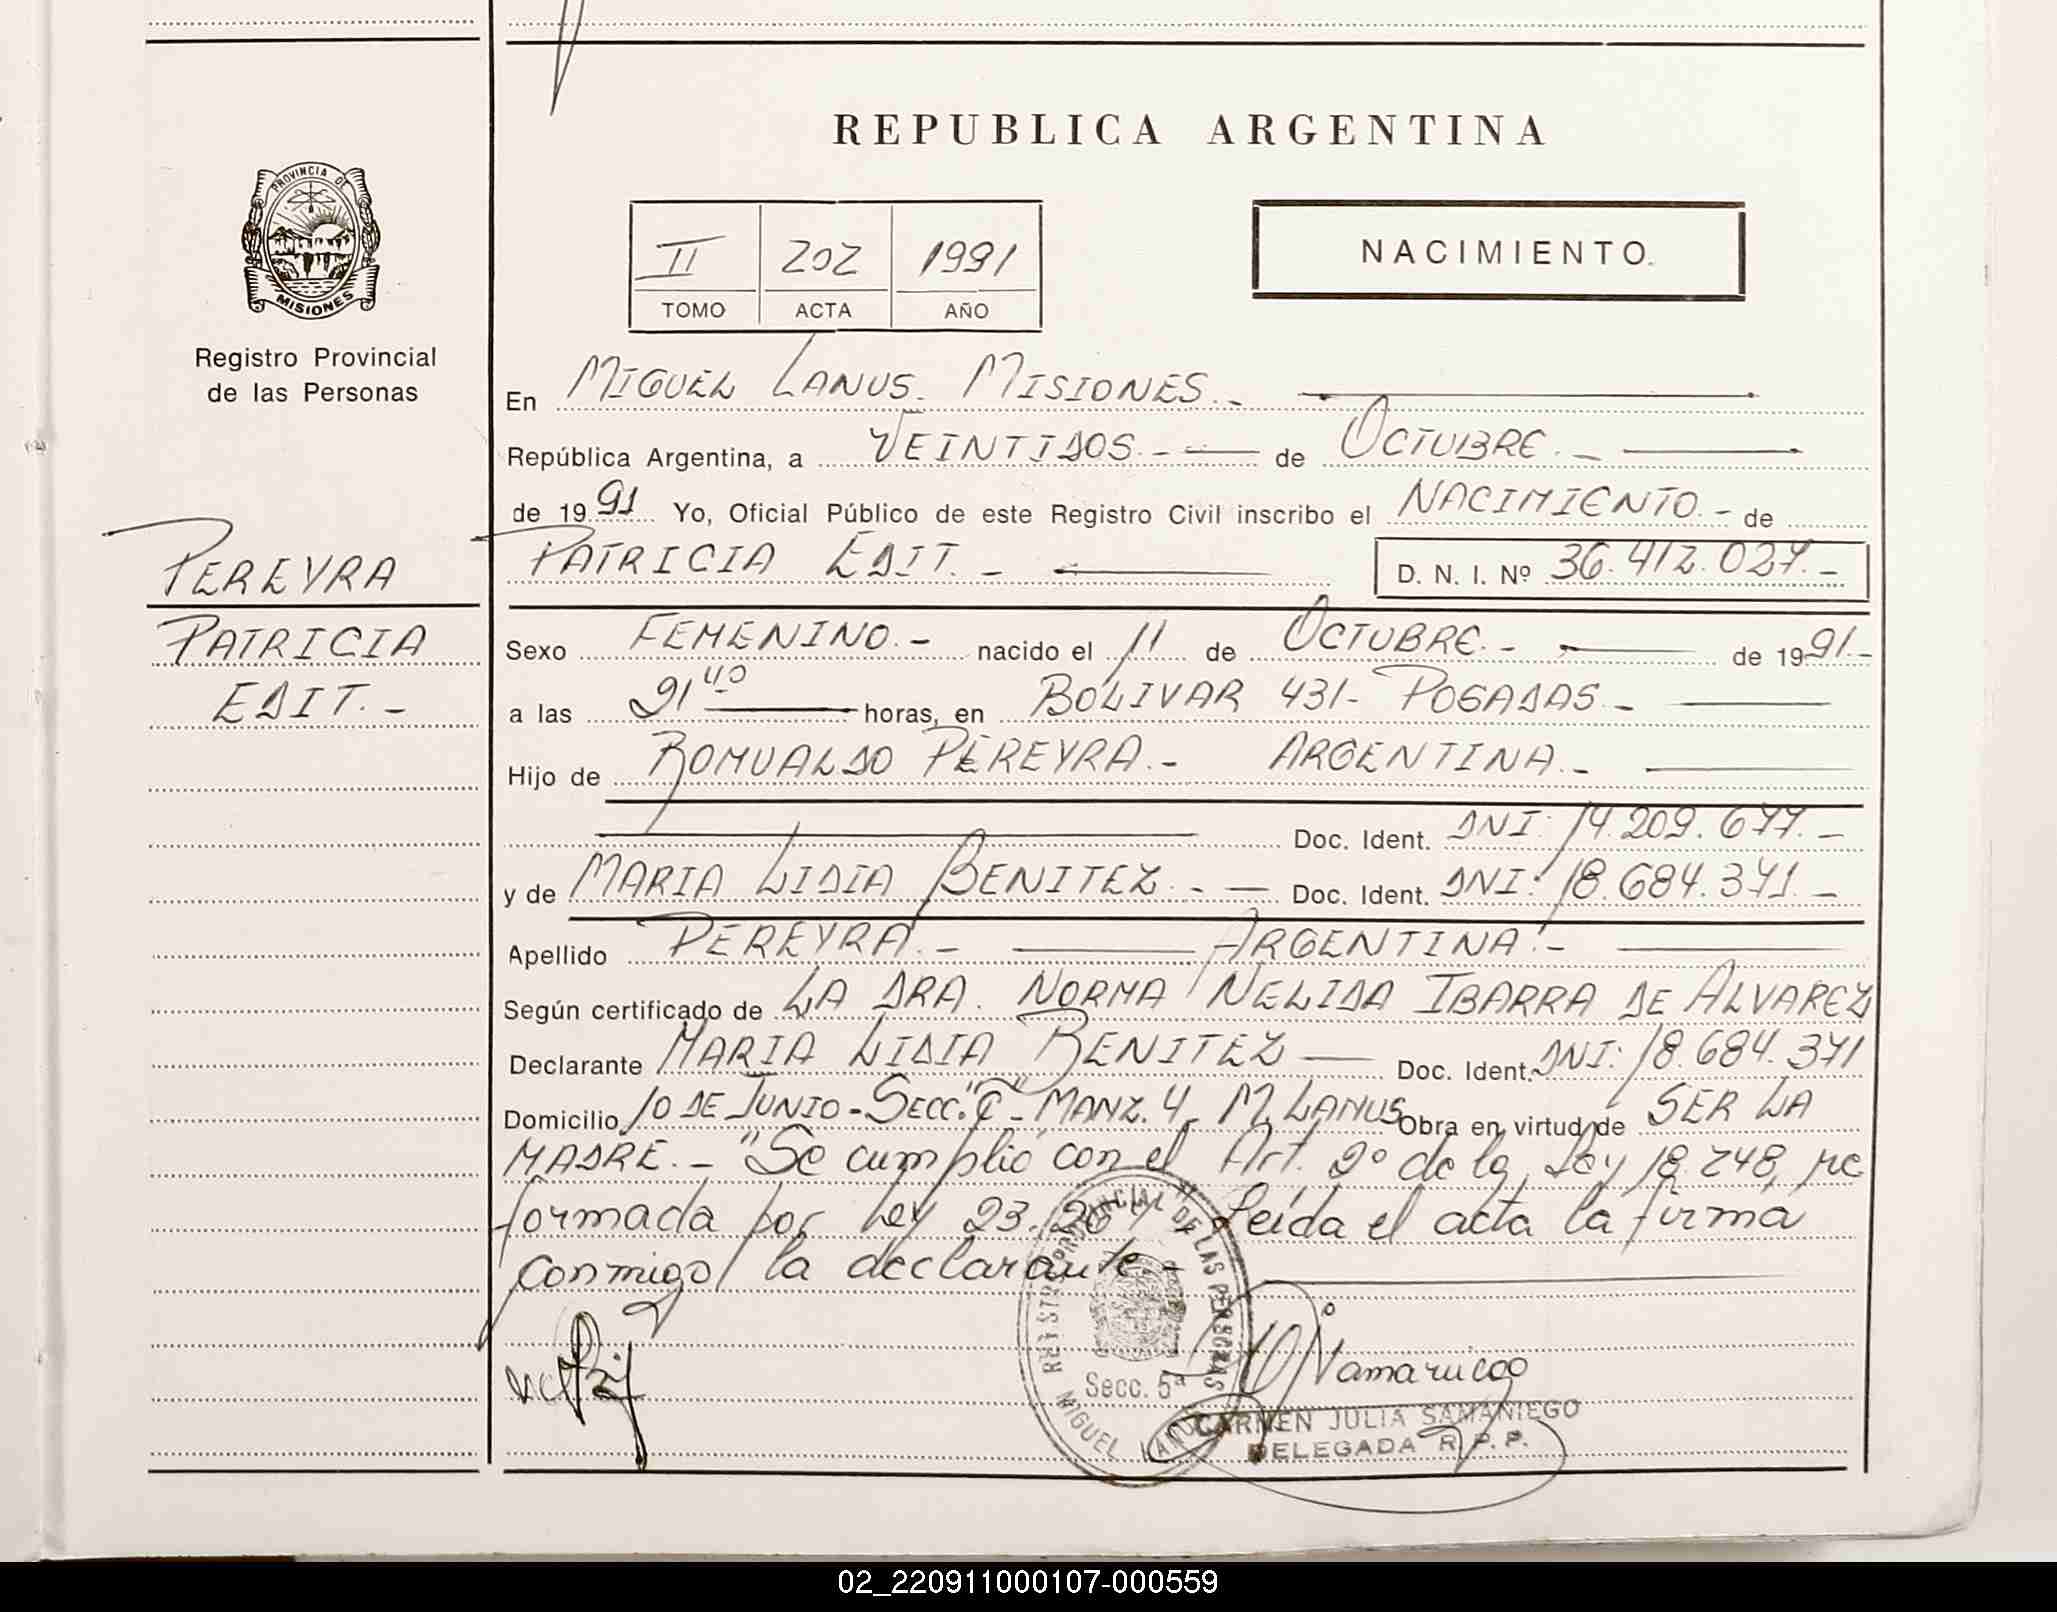 REPUBLICA ARGENTINA
PROVINCIA DE
MISIONES
Registro Provincial
de las Personas
II 202 1991
TOMO ACTA AÑO
NACIMIENTO.
En MIGUEL LANUS. MISIONES.-
República Argentina, a VEINTIDOS.- de OCTUBRE.-
de 1991 Yo, Oficial Público de este Registro Civil inscribo el NACIMIENTO.- de
PEREYRA
PATRICIA EDIT.- D. N. I. Nº 36.412.027.-
PATRICIA
EDIT.-
Sexo FEMENINO.- nacido el 11 de OCTUBRE.- de 1991.-
a las 21 40 horas, en BOLIVAR 431- POSADAS.-
Hijo de ROMUALDO PEREYRA.- ARGENTINA.-
Doc. Ident. DNI: 14.209.677.-
y de MARIA LIDIA BENITEZ.- Doc. Ident. DNI: 18.684.371.-
Apellido PEREYRA.- ARGENTINA.-
Según certificado de LA DRA. NORMA NELIDA IBARRA DE ALVAREZ
Declarante MARIA LIDIA BENITEZ Doc. Ident. DNI: 18.684.371
Domicilio 10 DE JUNIO-SECC."C"-MANZ.4. M. LANUS Obra en virtud de SER LA
MADRE.- "Se cumplió con el Art. 2º de la Ley 18.248, re
formada por Ley 23.264" Leída el acta la firma
conmigo la declarante-
REGISTRO PROVINCIAL DE LAS PERSONAS
Secc. 5ª
MIGUEL LANUS
CARMEN JULIA SAMANIEGO
DELEGADA R. P. P.
02_220911000107-000559